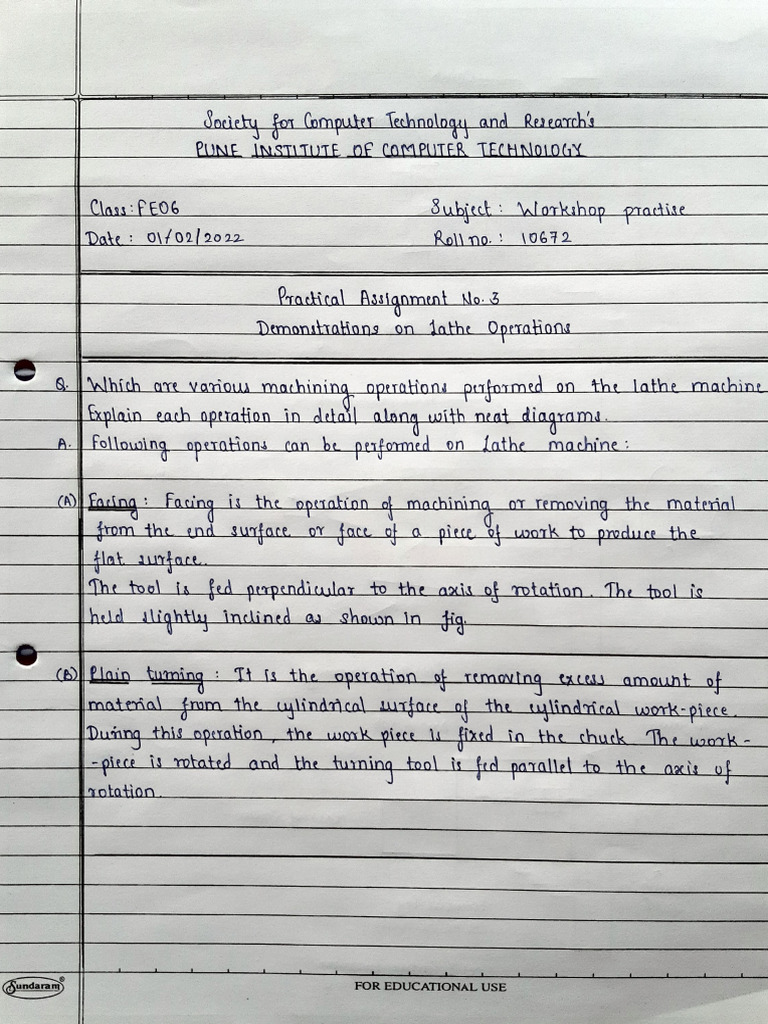 Society for Computer Technology and Research's
PUNE INSTITUTE OF COMPUTER TECHNOLOGY
Class: FE06 Subject: Workshop practise
Date: 01/02/2022 Roll no.: 10672
Practical Assignment No. 3
Demonstrations on Lathe Operations
Q. Which are various machining operations performed on the lathe machine
Explain each operation in detail along with neat diagrams.
A. Following operations can be performed on Lathe machine:
(A) Facing: Facing is the operation of machining or removing the material
from the end surface or face of a piece of work to produce the
flat surface.
The tool is fed perpendicular to the axis of rotation. The tool is
held slightly inclined as shown in fig.
(B) Plain turning: It is the operation of removing excess amount of
material from the cylindrical surface of the cylindrical work-piece.
During this operation, the work piece is fixed in the chuck. The work-
-piece is rotated and the turning tool is fed parallel to the axis of
rotation.
Sundaram®
FOR EDUCATIONAL USE